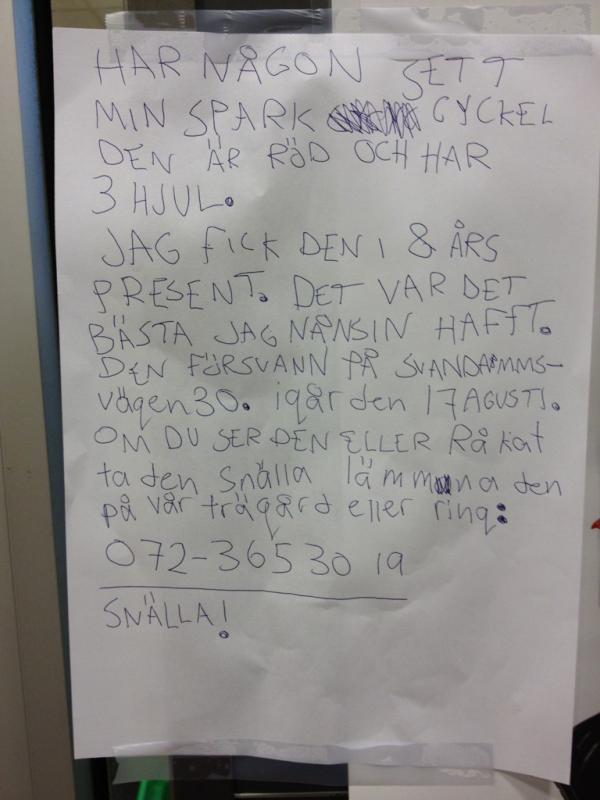 HAR NÅGON SETT
MIN SPARK CYCKEL
DEN ÄR RÖD OCH HAR
3 HJUL.
JAG FICK DEN I 8 ÅRS
PRESENT. DET VAR DET
BÄSTA JAG NÅNSIN HAFFT.
DEN FÖRSVANN PÅ SVANDAMMS-
vägen 30. igår den 17 AGUSTI.
OM DU SER DEN ELLER Råkat
ta den snälla lämmna den
på vår trägård eller ring:
072-365 30 19
SNÄLLA!